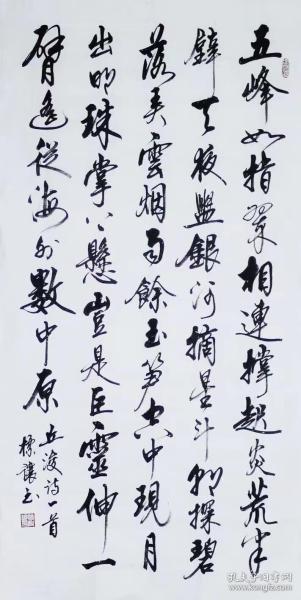 五峰如指翠相連撑起炎荒半
壁天夜盥銀河摘星斗朝探碧
落弄雲烟雨餘玉笋空中現月
出明珠掌上懸豈是巨靈伸一
臂遥從海外數中原
丘浚诗一首
书
孔夫子旧书网